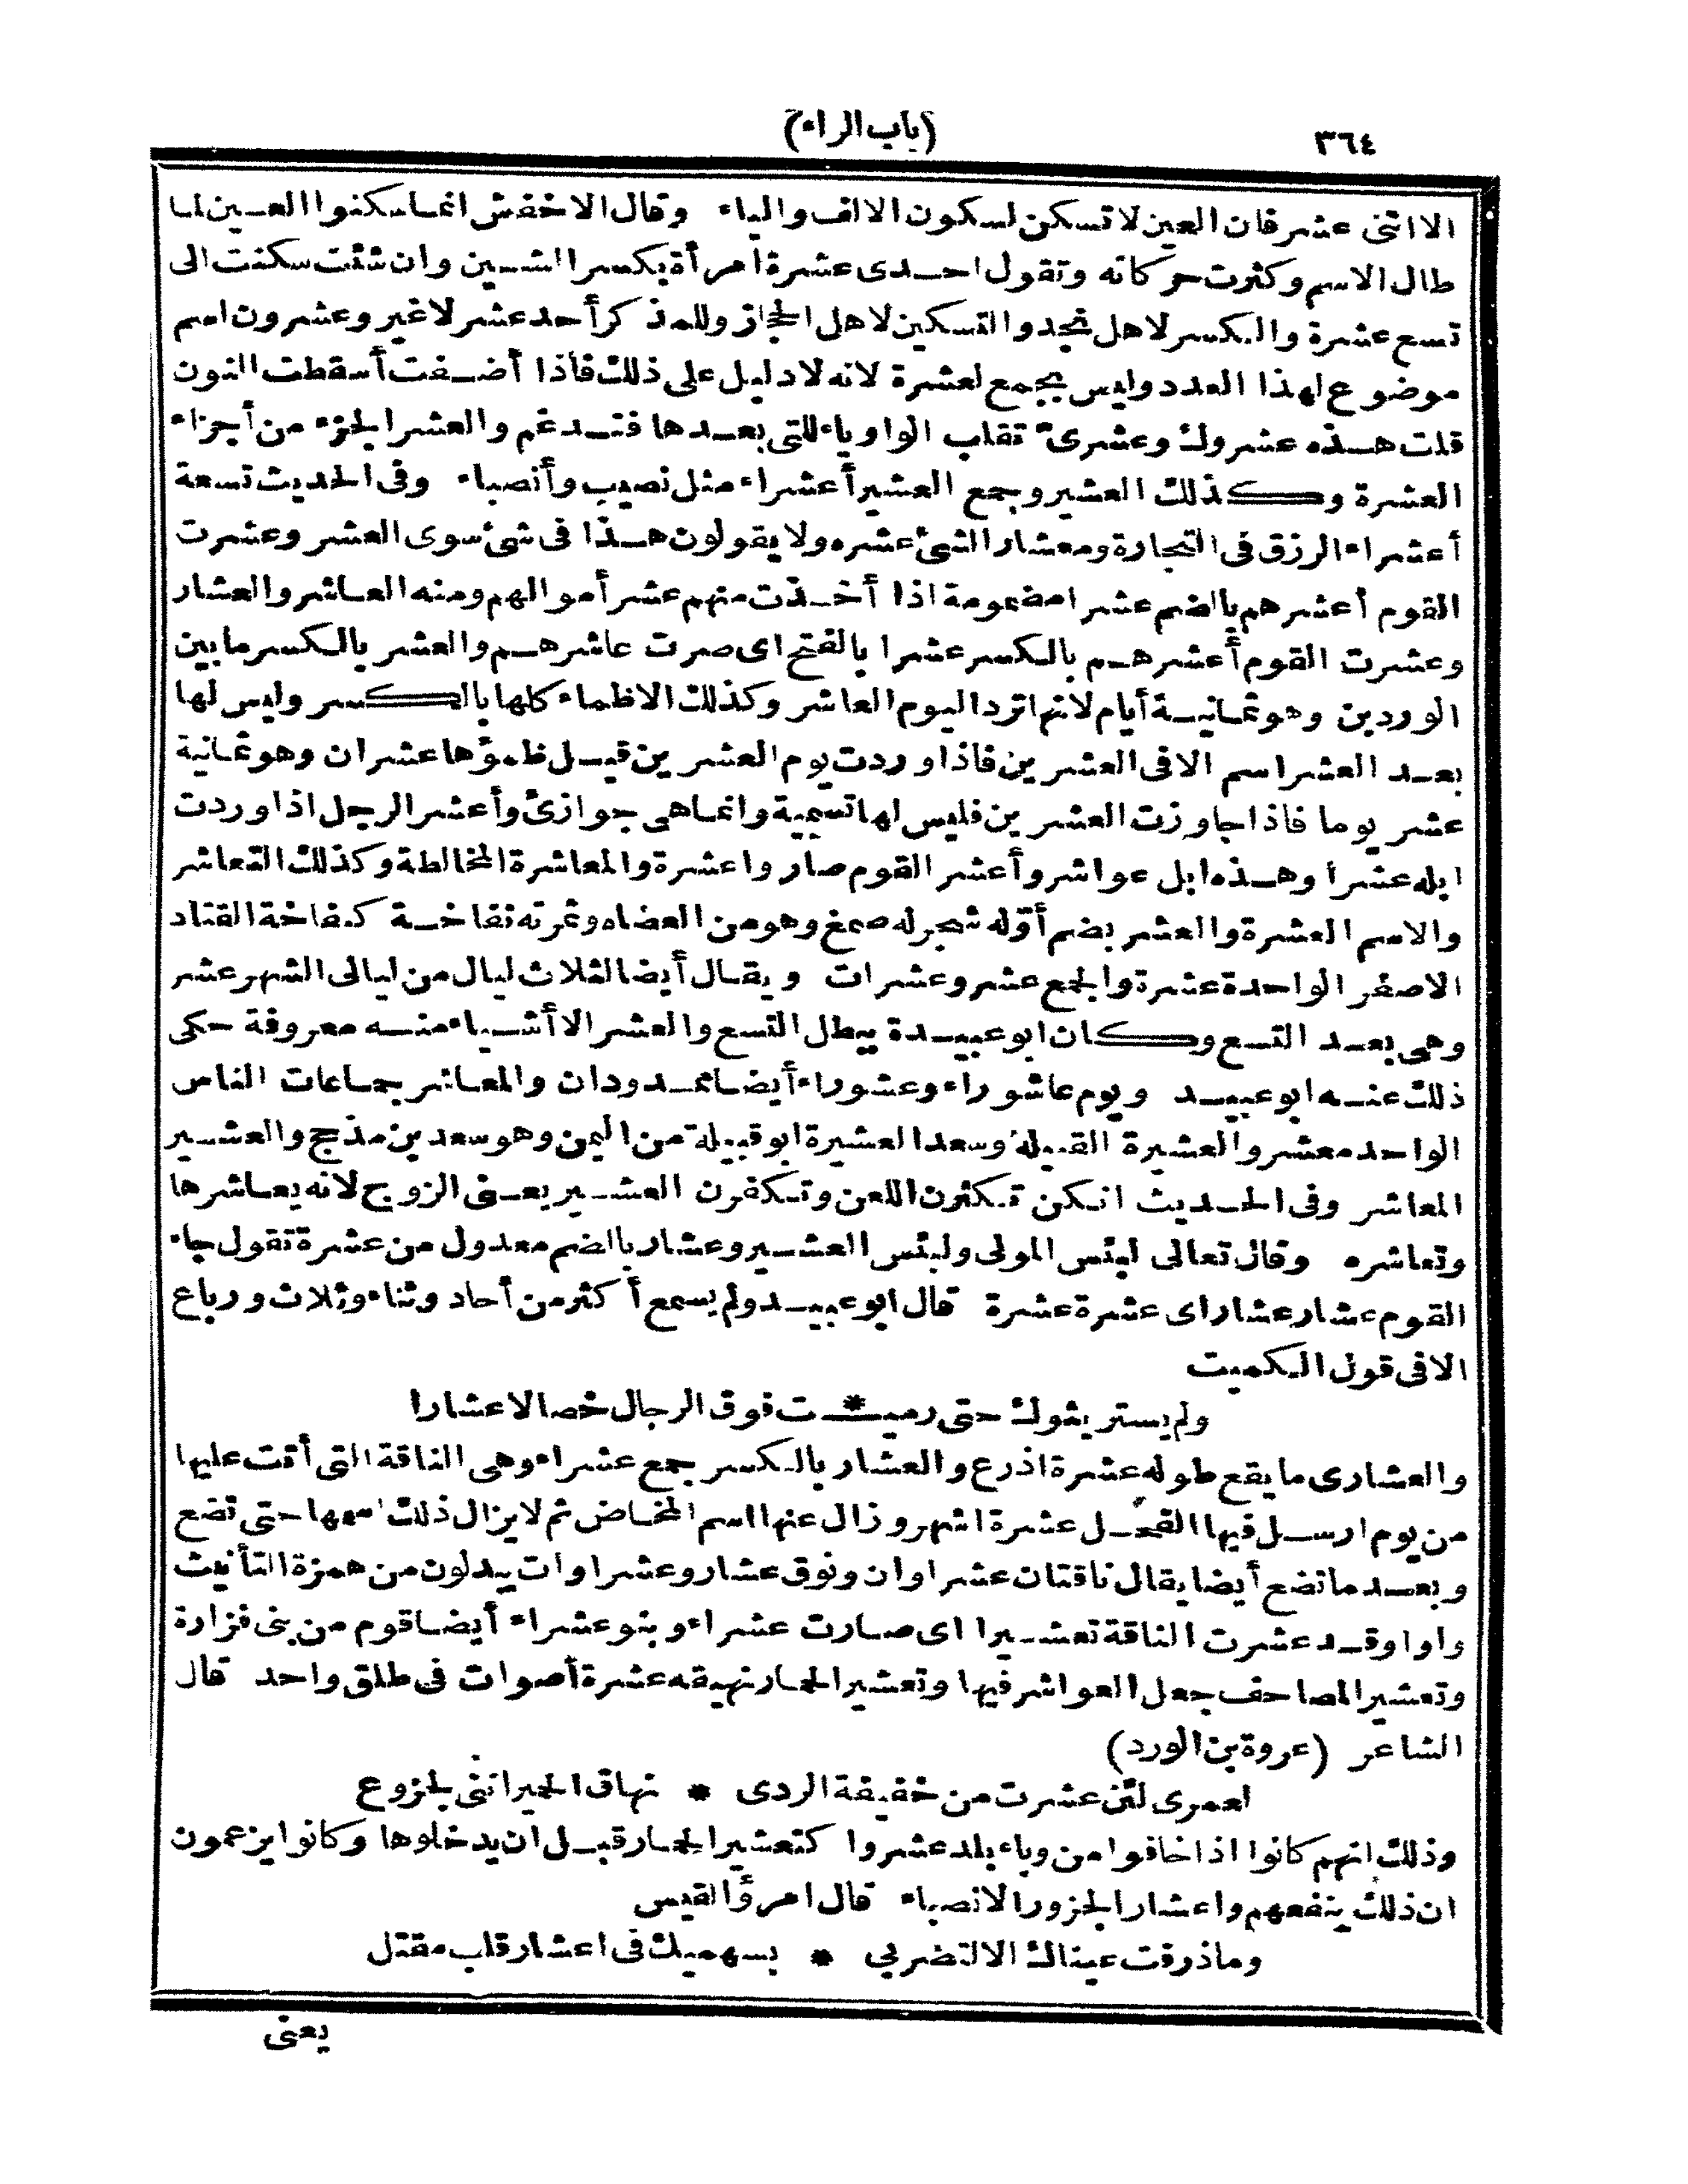 ٣٦٤
(باب الراء)
الا اثنى عشر فان العين لا تسكن لسكون الالف والياء وقال الاخفش انما سكنوا العين لما
طال الاسم وكثرت حركاته وتقول احدى عشرة امرأة بكسر الشين وان شئت سكنت الى
تسع عشرة والكسر لاهل نجد والتسكين لاهل الحجاز وللمذكر أحد عشر لا غير وعشرون اسم
موضوع لهذا العدد وليس بجمع لعشرة لانه لا دليل على ذلك فاذا أضفت أسقطت النون
قلت هذه عشروك وعشرىّ تقلب الواو ياء للتى بعدها فتدغم والعشر الجزء من أجزاء
العشرة وكذلك العشير وجمع العشير أعشراء مثل نصيب وأنصباء وفى الحديث تسعة
أعشراء الرزق فى التجارة ومعشار الشئ عشره ولا يقولون هذا فى شئ سوى العشر وعشرت
القوم أعشرهم بالضم عشرا مضمومة اذا أخذت منهم عشر أموالهم ومنه العاشر والعشار
وعشرت القوم أعشرهم بالكسر عشرا بالفتح اى صرت عاشرهم والعشر بالكسر ما بين
الوردين وهو ثمانية أيام لانها ترد اليوم العاشر وكذلك الاظماء كلها بالكسر وليس لها
بعد العشر اسم الا فى العشرين فاذا وردت يوم العشرين قيل ظمؤها عشران وهو ثمانية
عشر يوما فاذا جاوزت العشرين فليس لها تسمية وانما هى جوازئ وأعشر الرجل اذا وردت
ابله عشرا وهذه ابل عواشر وأعشر القوم صاروا عشرة والمعاشرة المخالطة وكذلك التعاشر
والاسم العشرة والعشر بضم أوّله شجر له صمغ وهو من العضاه وثمرته نفاخة كنفاخة القتاد
الاصفر الواحدة عشرة والجمع عشر وعشرات ويقال أيضا لثلاث ليال من ليالى الشهر عشر
وهى بعد التسع وكان ابو عبيدة يبطل التسع والعشر الا أشياء منه معروفة حكى
ذلك عنه ابو عبيد ويوم عاشوراء وعشوراء أيضا ممدودان والمعاشر جماعات الناس
الواحد معشر والعشيرة القبيلة وسعد العشيرة ابو قبيلة من اليمن وهو سعد بن مذحج والعشير
المعاشر وفى الحديث انكن تكثرن اللعن وتكفرن العشير يعنى الزوج لانه يعاشرها
وتعاشره وقال تعالى لبئس المولى ولبئس العشير وعشار بالضم معدول من عشرة تقول جاء
القوم عشار عشار اى عشرة عشرة قال ابو عبيد ولم يسمع أكثر من أحاد وثناء وثلاث ورباع
الا فى قول الكميت
ولم يستريثوك حتى رميـ * ـت فوق الرجال خصالا عشارا
والعشارى ما يقع طوله عشرة اذرع والعشار بالكسر جمع عشراء وهى الناقة التى أتت عليها
من يوم ارسل فيها الفحل عشرة اشهر وزال عنها اسم المخاض ثم لا يزال ذلك اسمها حتى تضع
وبعد ما تضع أيضا يقال ناقتان عشراوان ونوق عشار وعشراوات يبدلون من همزة التأنيث
واوا وقد عشرت الناقة تعشيرا اى صارت عشراء وبنو عشراء أيضا قوم من بنى فزارة
وتعشير المصاحف جعل العواشر فيها وتعشير الحمار نهيقه عشرة أصوات فى طلق واحد قال
الشاعر (عروة بن الورد)
لعمرى لئن عشرت من خفيفة الردى * نهاق الحمير اننى لجزوع
وذلك انهم كانوا اذا خافوا من وباء بلد عشروا كتعشير الحمار قبل ان يدخلوها وكانوا يزعمون
ان ذلك ينفعهم واعشار الجزور الانصباء قال امرؤ القيس
وما ذرفت عيناك الا لتضربى * بسهميك فى اعشار قلب مقتل
يعنى